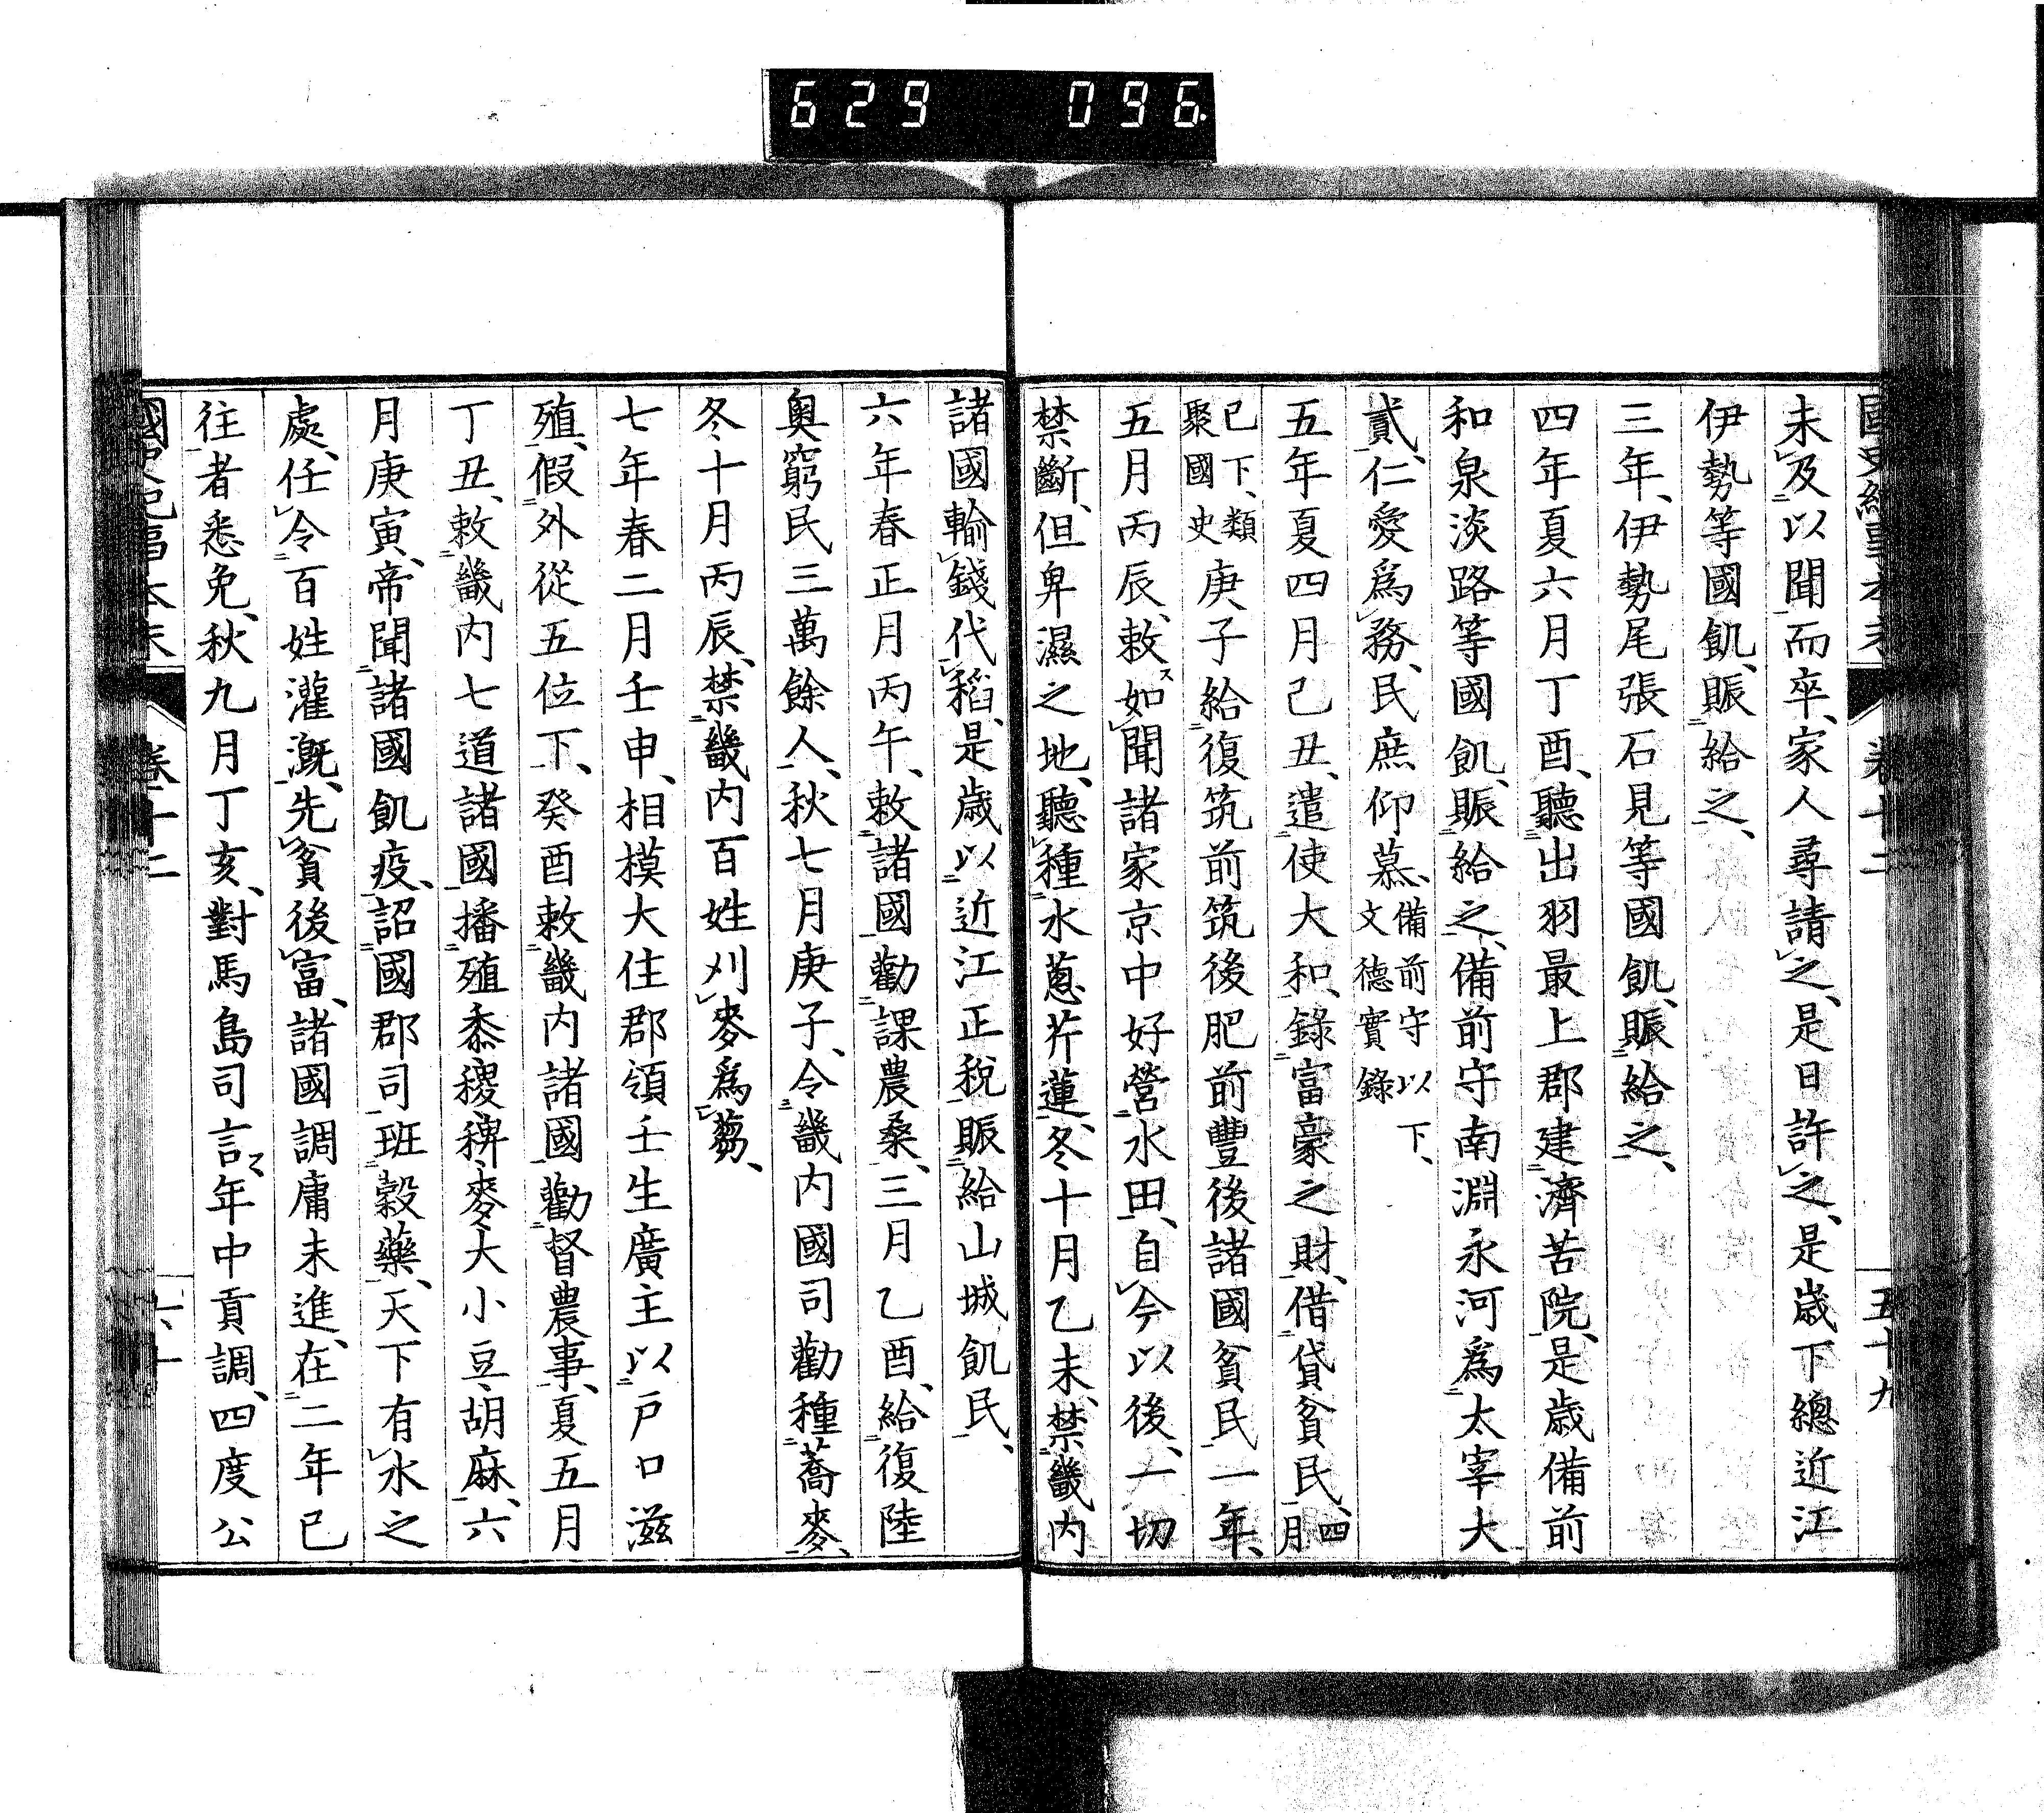 629 096
國史紀事本末 卷十二 五十九
未及以聞而卒、家人尋請之、是日許之、是歲下總近江
伊勢等國飢、賑給之、
三年、伊勢尾張石見等國飢、賑給之、
四年夏六月丁酉、聽出羽最上郡建濟苦院、是歲備前
和泉淡路等國飢、賑給之、備前守南淵永河爲太宰大
貳、仁愛爲務、民庶仰慕、備前守以下、文德實錄
五年夏四月己丑、遣使大和、錄富豪之財、借貸貧民、四月
已下、類聚國史庚子給復筑前筑後肥前豐後諸國貧民一年、
五月丙辰、敕如聞諸家京中好營水田、自今以後、一切
禁斷、但卑濕之地、聽種水蔥芹蓮、冬十月乙未、禁畿內
諸國輸錢代稻、是歲以近江正稅賑給山城飢民、
六年春正月丙午、敕諸國勸課農桑、三月乙酉、給復陸
奧窮民三萬餘人、秋七月庚子、令畿內國司勸種蕎麥、
冬十月丙辰、禁畿內百姓刈麥爲蒭、
七年春二月壬申、相模大住郡領壬生廣主以戶口滋
殖、假外從五位下、癸酉敕畿內諸國勸督農事、夏五月
丁丑、敕畿內七道諸國播殖黍稷稗麥大小豆胡麻、六
月庚寅、帝聞諸國飢疫、詔國郡司班穀藥、天下有水之
處、任令百姓灌漑、先貧後富、諸國調庸未進、在二年已
往者悉免、秋九月丁亥、對馬島司言、年中貢調、四度公
國史紀事本末 卷十二